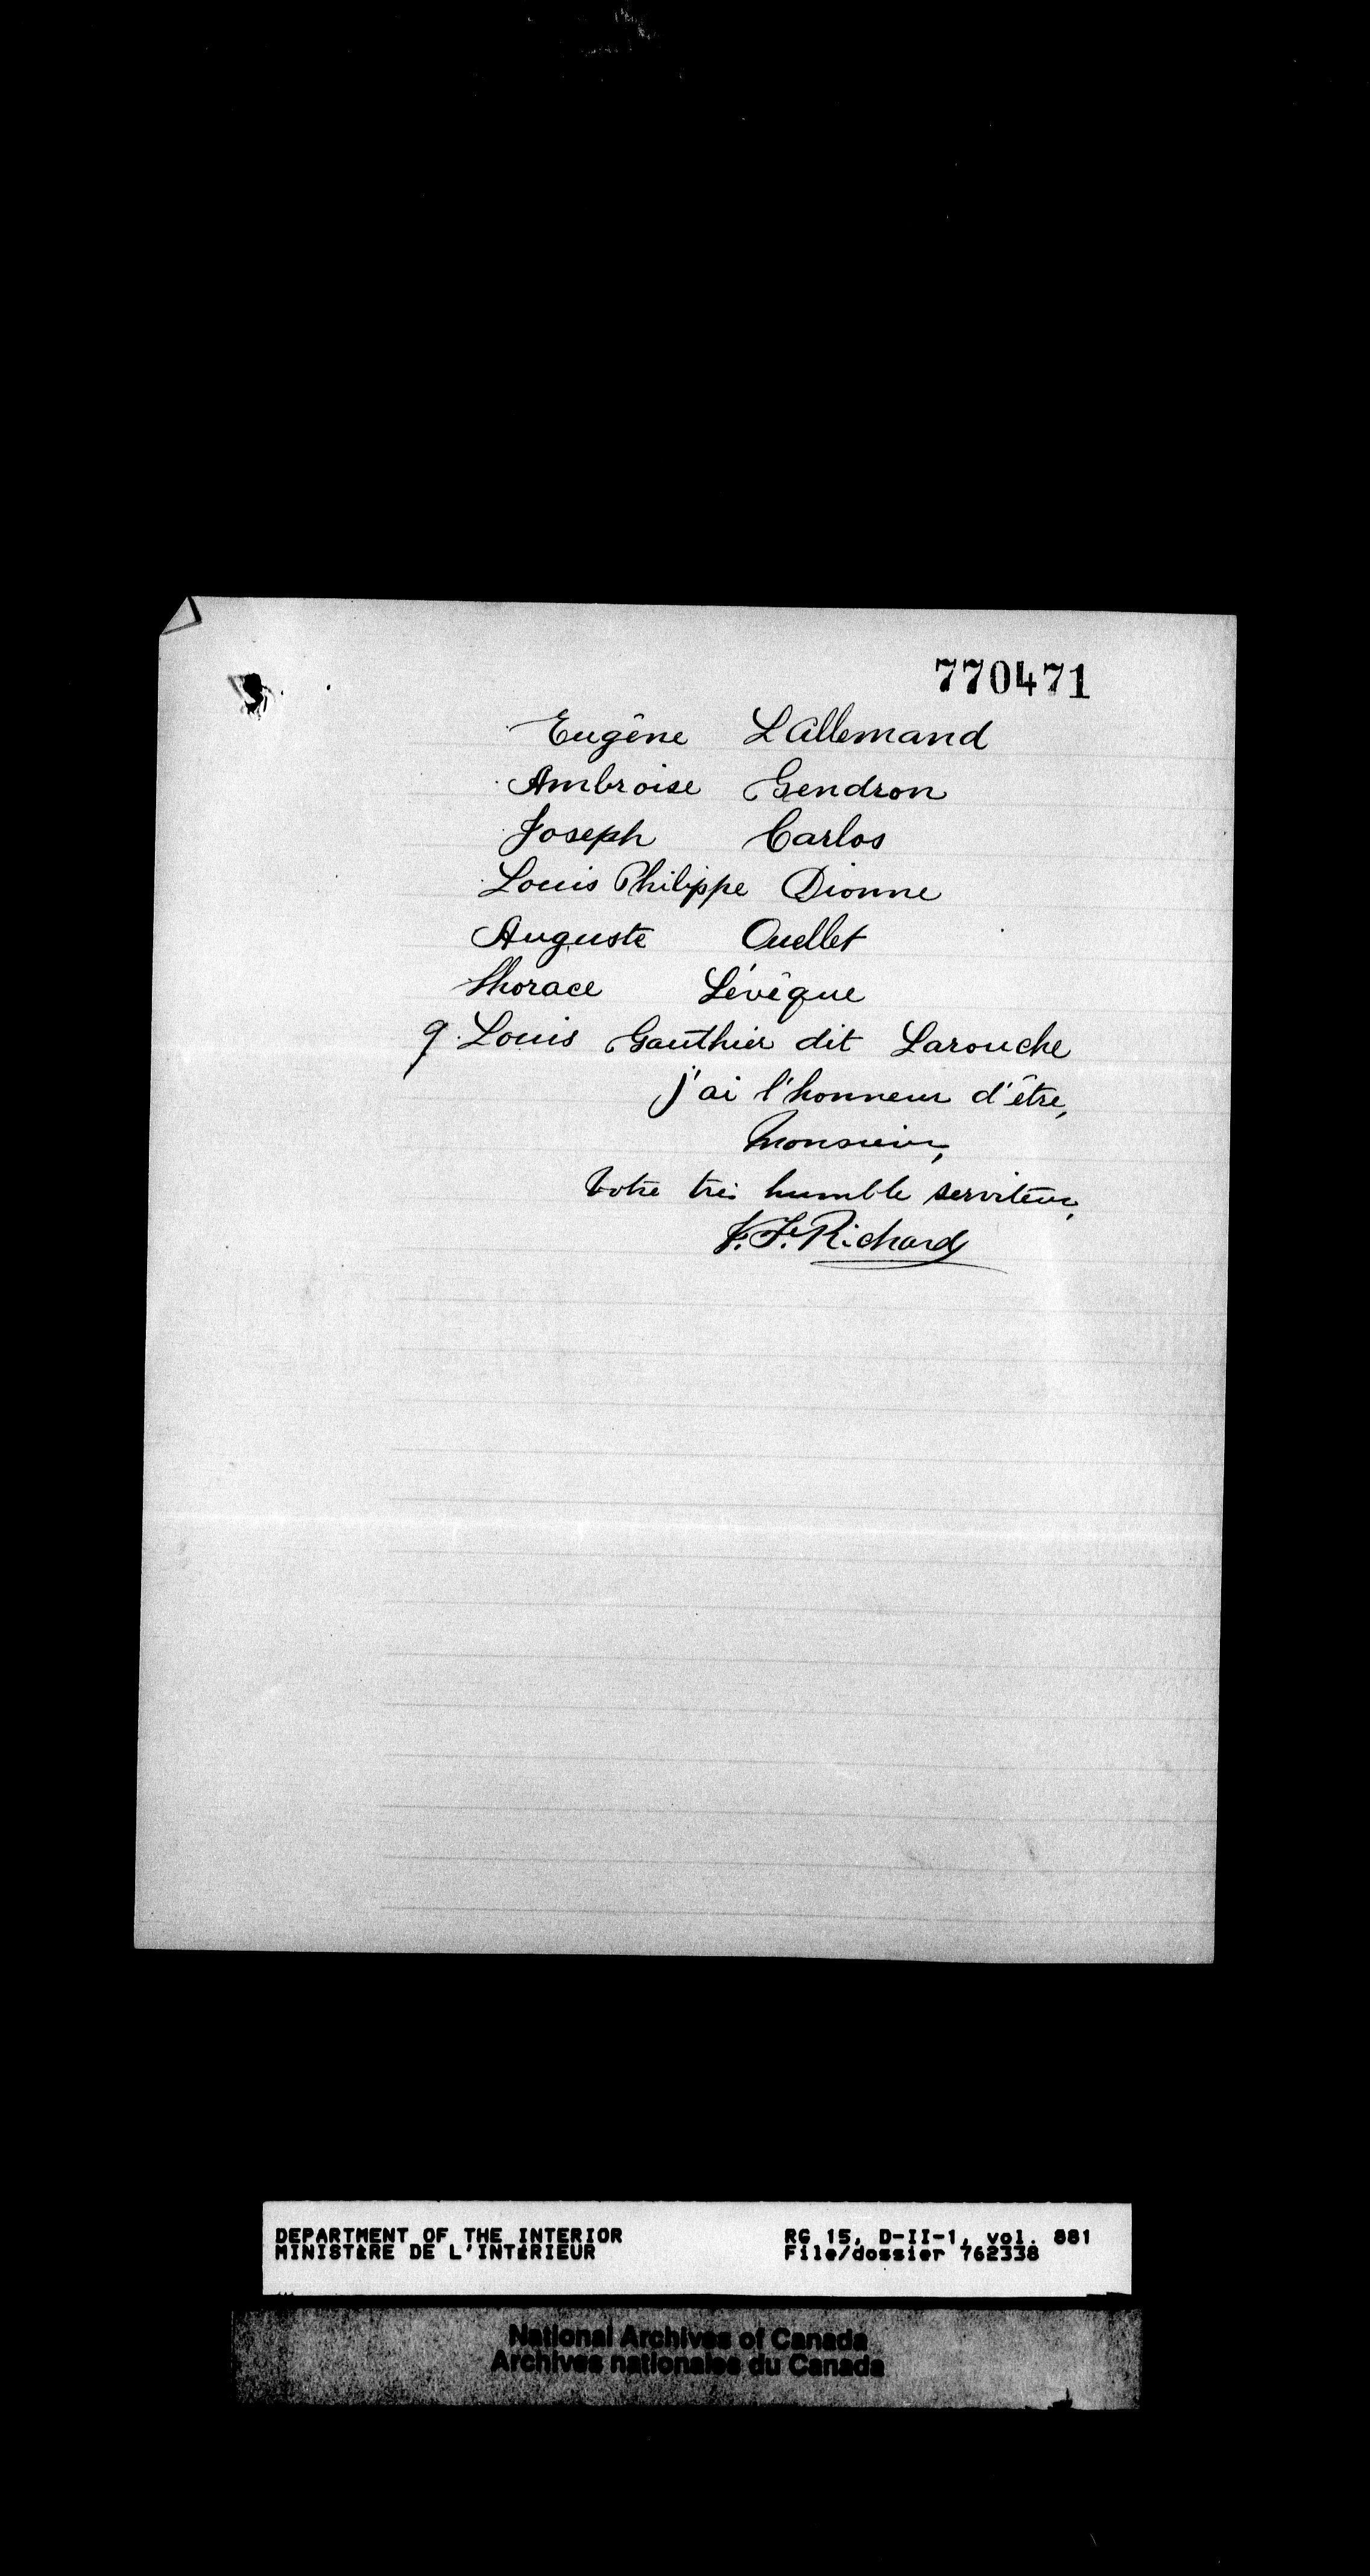 770471
Eugène LAllemand
Ambroise Gendron
Joseph Carlos
Louis Philippe Dionne
Auguste Ouellet
Horace Lévêque
9. Louis Gauthier dit Larouche
j'ai l'honneur d'être,
Monsieur,
Votre très humble serviteur,
J. F. Richard
DEPARTMENT OF THE INTERIOR RG 15, D-II-1, vol. 881
MINISTÈRE DE L'INTÉRIEUR File/dossier 762338
National Archives of Canada
Archives nationales du Canada